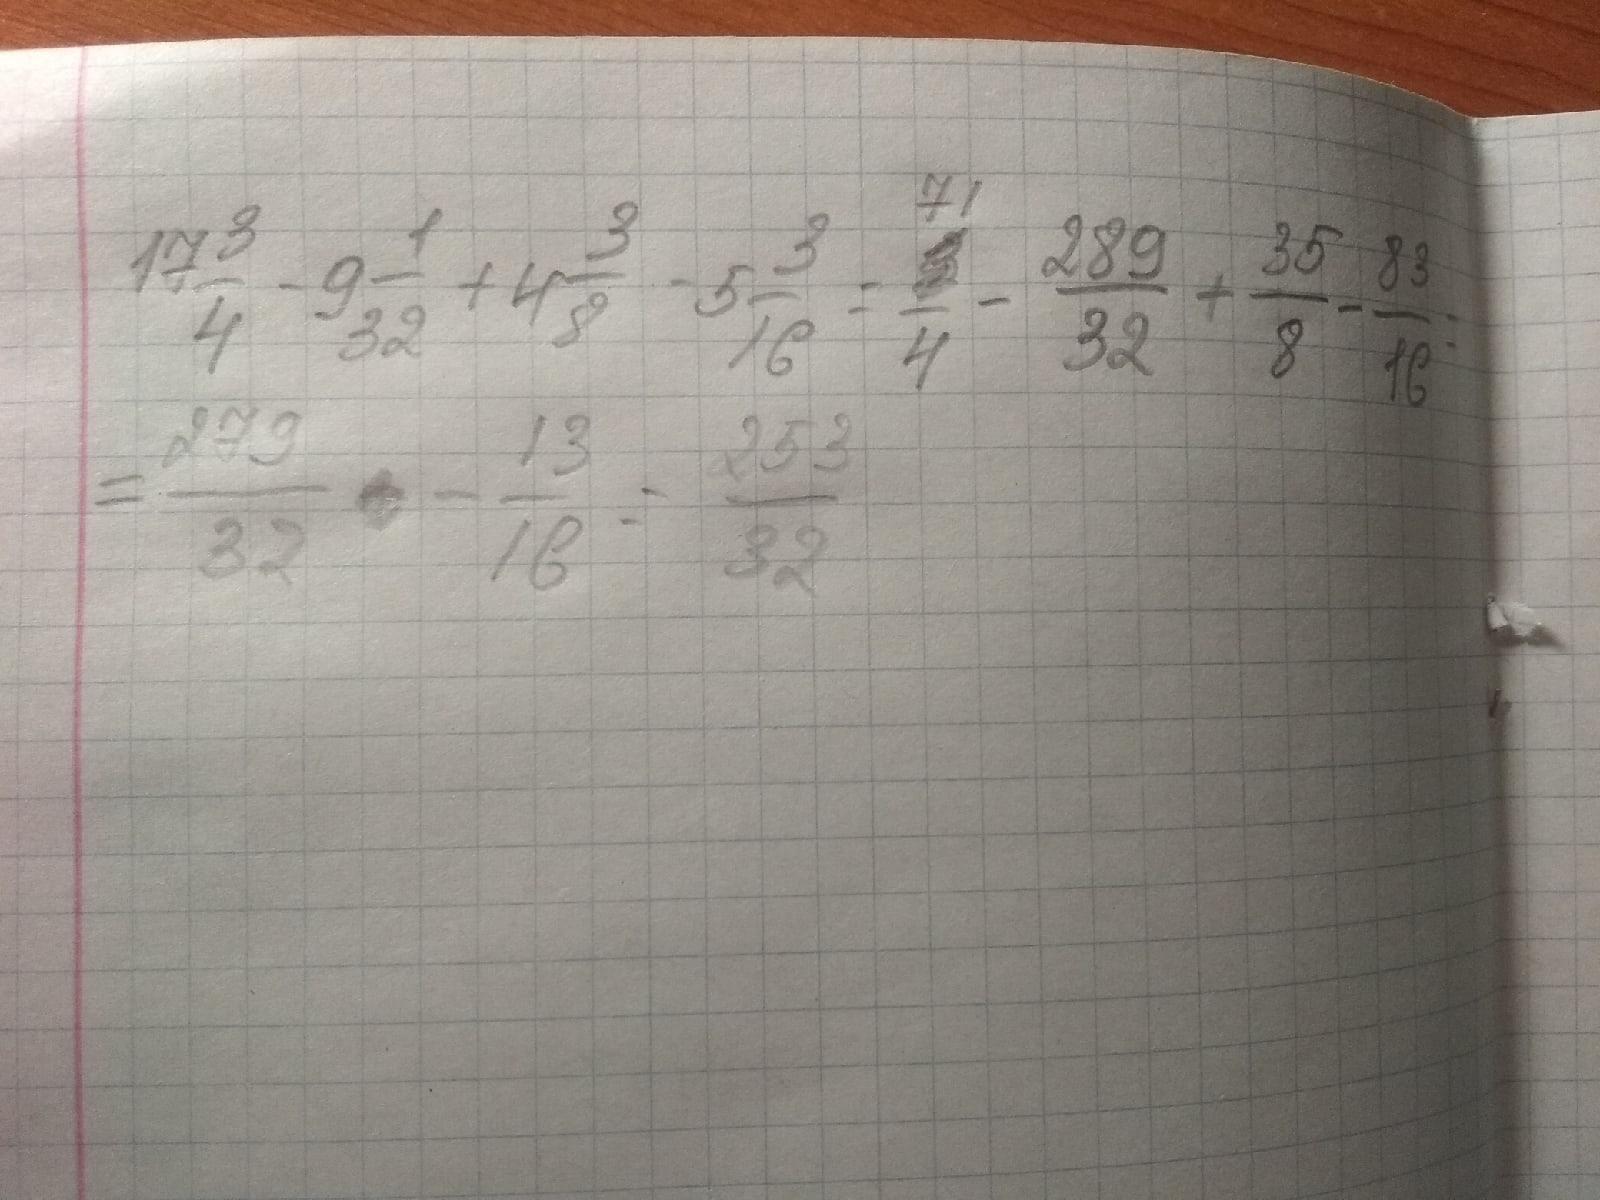 17 3/4 - 9 1/32 + 4 3/8 - 5 3/16 = 71/4 - 289/32 + 35/8 - 83/16 =
= 279/32 - 13/16 = 253/32